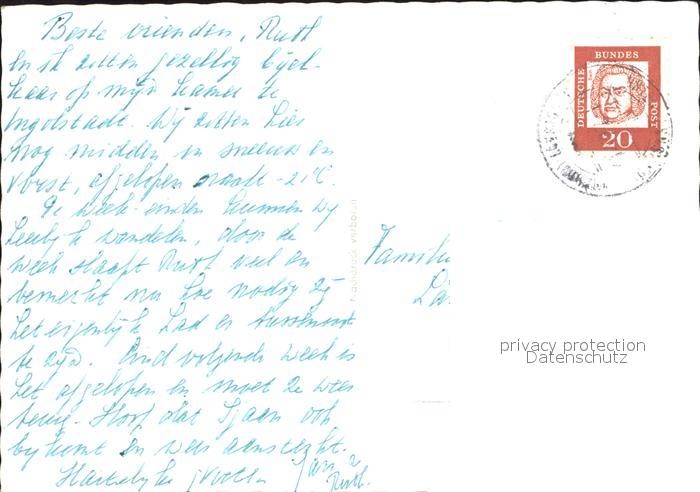 Beste vrienden, Ruth
en ik zitten gezellig bijel-
kaar op mijn kamer te
Ingolstadt. Wij zitten hier
nog midden in sneeuw en
vorst, afgelopen nacht -21°C.
De week-einden kunnen wij
heerlijk wandelen, door de
week slaapt Ruth veel en
bemerkt nu hoe nodig zij
het eigenlijk had er tussenuit
te zijn. Eind volgende week is
het afgelopen en moet ze weer
terug. Hoop dat Sjaan ook
bijkomt en weer aansterkt.
Hartelijke groeten
Ruth.
Nachdruck verboten
Familie
DEUTSCHE BUNDES POST
20
privacy protection
Datenschutz